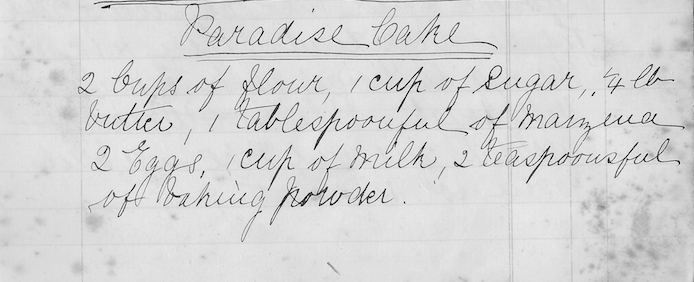 Paradise Cake
2 Cups of flour, 1 cup of Sugar, 1/4 lb
butter, 1 tablespoonful of maizena
2 Eggs, 1 cup of milk, 2 teaspoonsful
of baking powder.